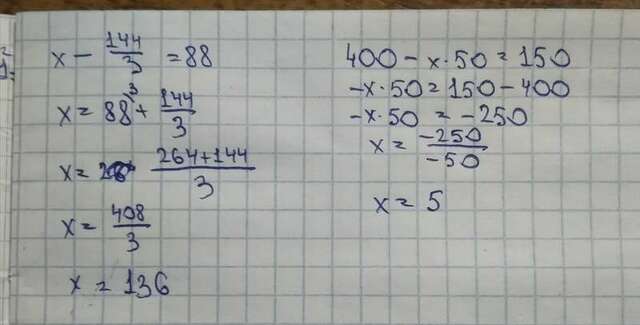 x - 144/3 = 88
x = 88³ + 144/3
x = (264+144)/3
x = 408/3
x = 136
400 - x · 50 = 150
-x · 50 = 150 - 400
-x · 50 = -250
x = -250/-50
x = 5